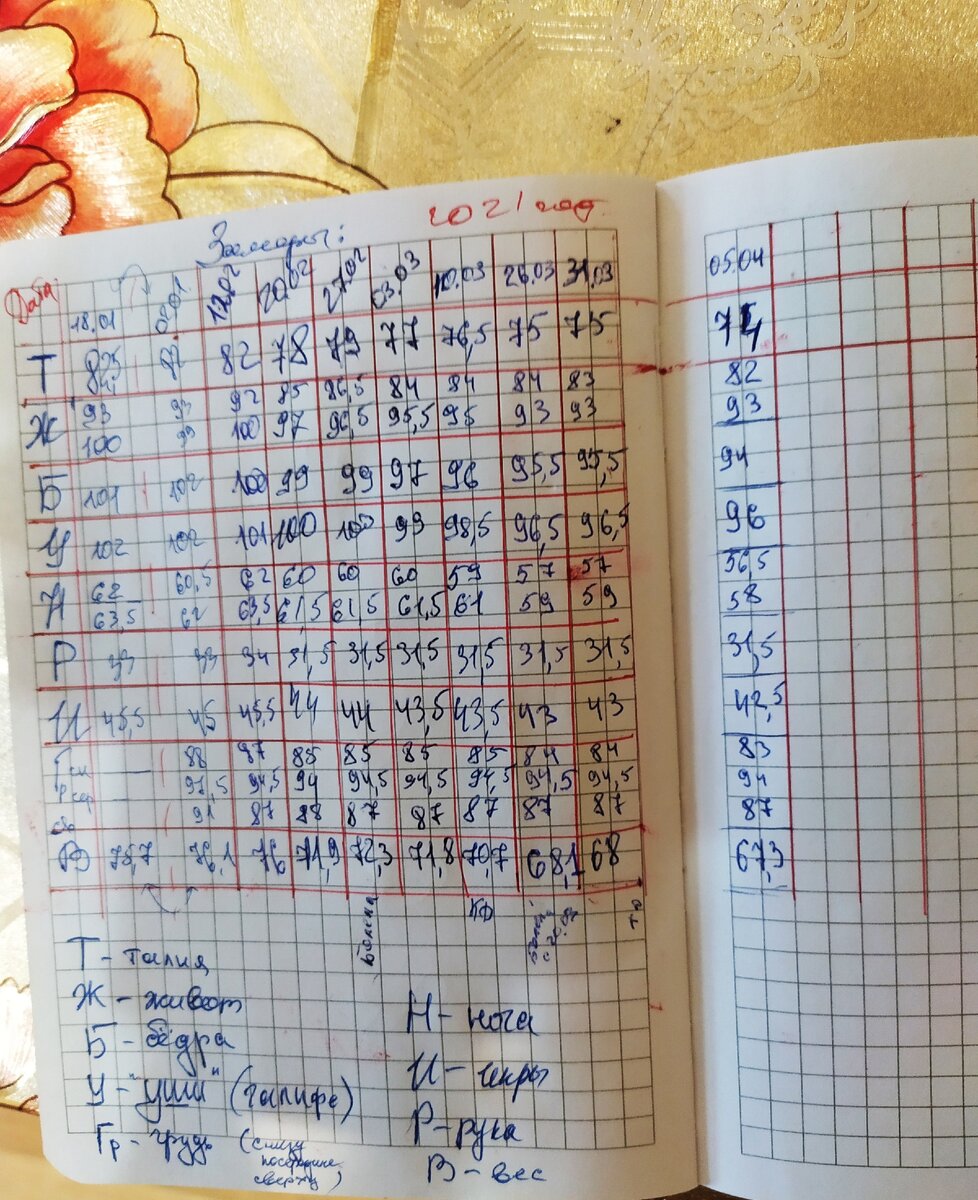 Замеры: 2021 год.
Дата 18.01 02.01 12.02 20.02 27.02 03.03 10.03 26.03 31.03 05.04
Т 82 82 78 79 77 76,5 75 75 74
93 93 92 85 86,5 84 84 84 83 82
Ж 100 99 100 97 96,5 95,5 95 93 93 93
Б 104 102 100 99 99 97 96 95,5 95,5 94
У 102 102 101 100 100 99 98,5 96,5 96,5 96
62 60,5 62 60 60 60 59 57 57 56,5
Н 63,5 62 63,5 61,5 61,5 61,5 61 59 59 58
Р 33 33 34 31,5 31,5 31,5 31,5 31,5 31,5 31,5
И 45,5 45 45,5 44 44 43,5 43,5 43 43 42,5
Гр сн 88 87 85 85 85 85 84 84 83
сер 94,5 94 94,5 94,5 94,5 94,5 94,5 94
91 87 88 87 87 87 87 87 87
В 75,7 76,1 76 71,9 72,3 71,8 70,7 68,1 68 67,3
КД
Т - талия
Ж - живот
Б - бёдра
У - "уши" (галифе)
Гр - грудь (снизу
посередине
сверху)
Н - нога
И - икры
Р - рука
В - вес